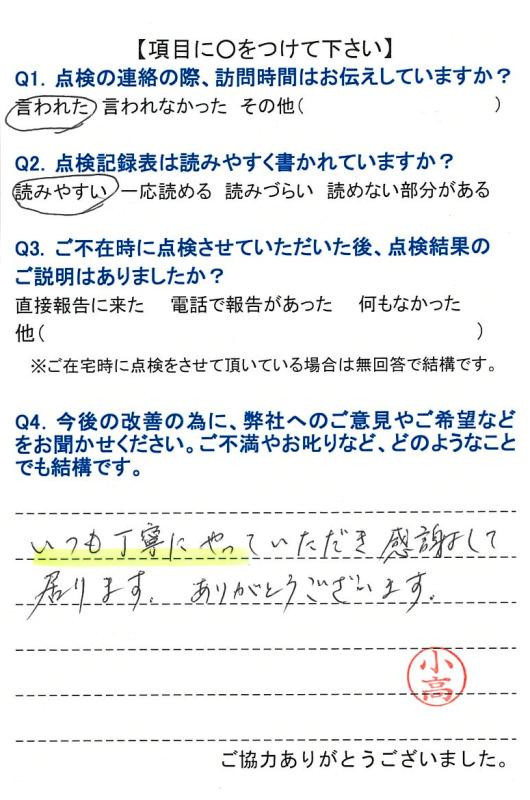 【項目に〇をつけて下さい】
Q1. 点検の連絡の際、訪問時間はお伝えしていますか？
言われた 言われなかった その他（ ）
Q2. 点検記録表は読みやすく書かれていますか？
読みやすい 一応読める 読みづらい 読めない部分がある
Q3. ご不在時に点検させていただいた後、点検結果の
ご説明はありましたか？
直接報告に来た 電話で報告があった 何もなかった
他（ ）
※ご在宅時に点検をさせて頂いている場合は無回答で結構です。
Q4. 今後の改善の為に、弊社へのご意見やご希望など
をお聞かせください。ご不満やお叱りなど、どのようなこと
でも結構です。
いつも丁寧にやっていただき感謝して
居ります。ありがとうございます。
小高
ご協力ありがとうございました。